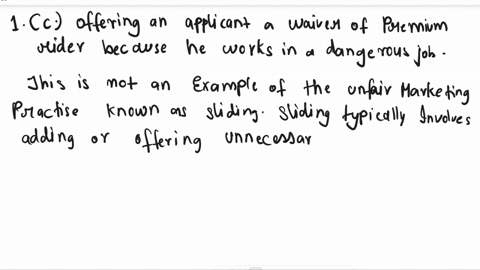 1. (c) offering an applicant a waiver of Premium
rider because he works in a dangerous job.
This is not an Example of the unfair Marketing
Practise known as sliding. Sliding typically Involves
adding or offering unnecessar